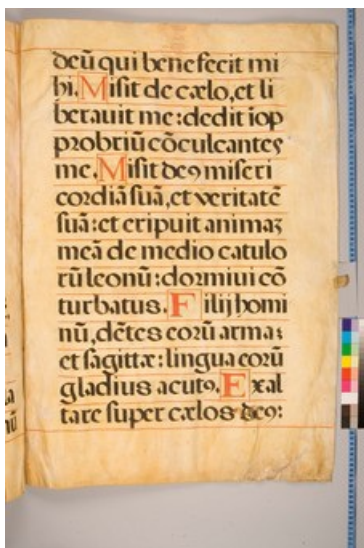 deū qui benefecit mi
hi. Misit de cælo, et li
berauit me: dedit iop
probriū cōculcantes
me. Misit deꝰ miseri
cordiā suā, et veritatē
suā: et eripuit animaꝫ
meā de medio catulo
rū leonū: dormiui cō
turbatus. Filij homi
nū, dētes eorū armaꝫ
et sagittæ: lingua eorū
gladius acutꝰ. Exal
tare super cælos deꝰ: